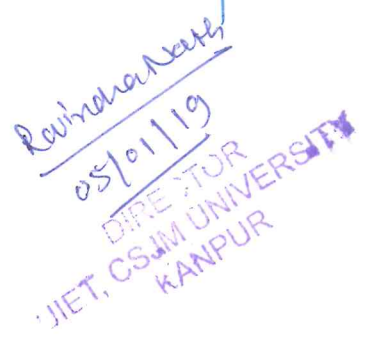 Ravindra Nath
05/01/19
DIRECTOR
UIET, CSJM UNIVERSITY
KANPUR